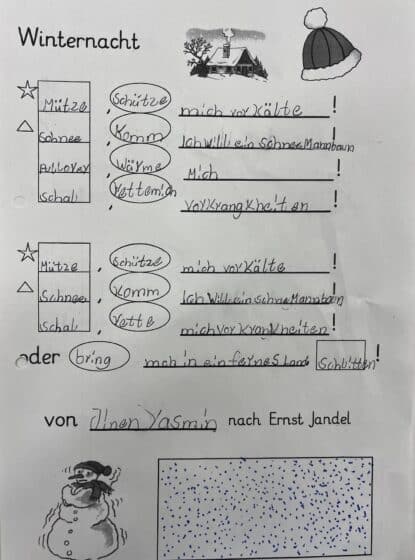 Winternacht
Mütze, Schütze mich vor Kälte!
Schnee, Komm Ich Will ein schnee Mann baun!
Pullover, Wärme Mich!
Schal, rette mich vor krang kheiten!
Mütze, Schütze mich vor Kälte!
Schnee, Komm Ich Will ein schne Mann baun!
Schal, rette mich vor krankheiten!
oder bring mich in ein fernes Land Schlitten!
von Yasmin nach Ernst Jandel